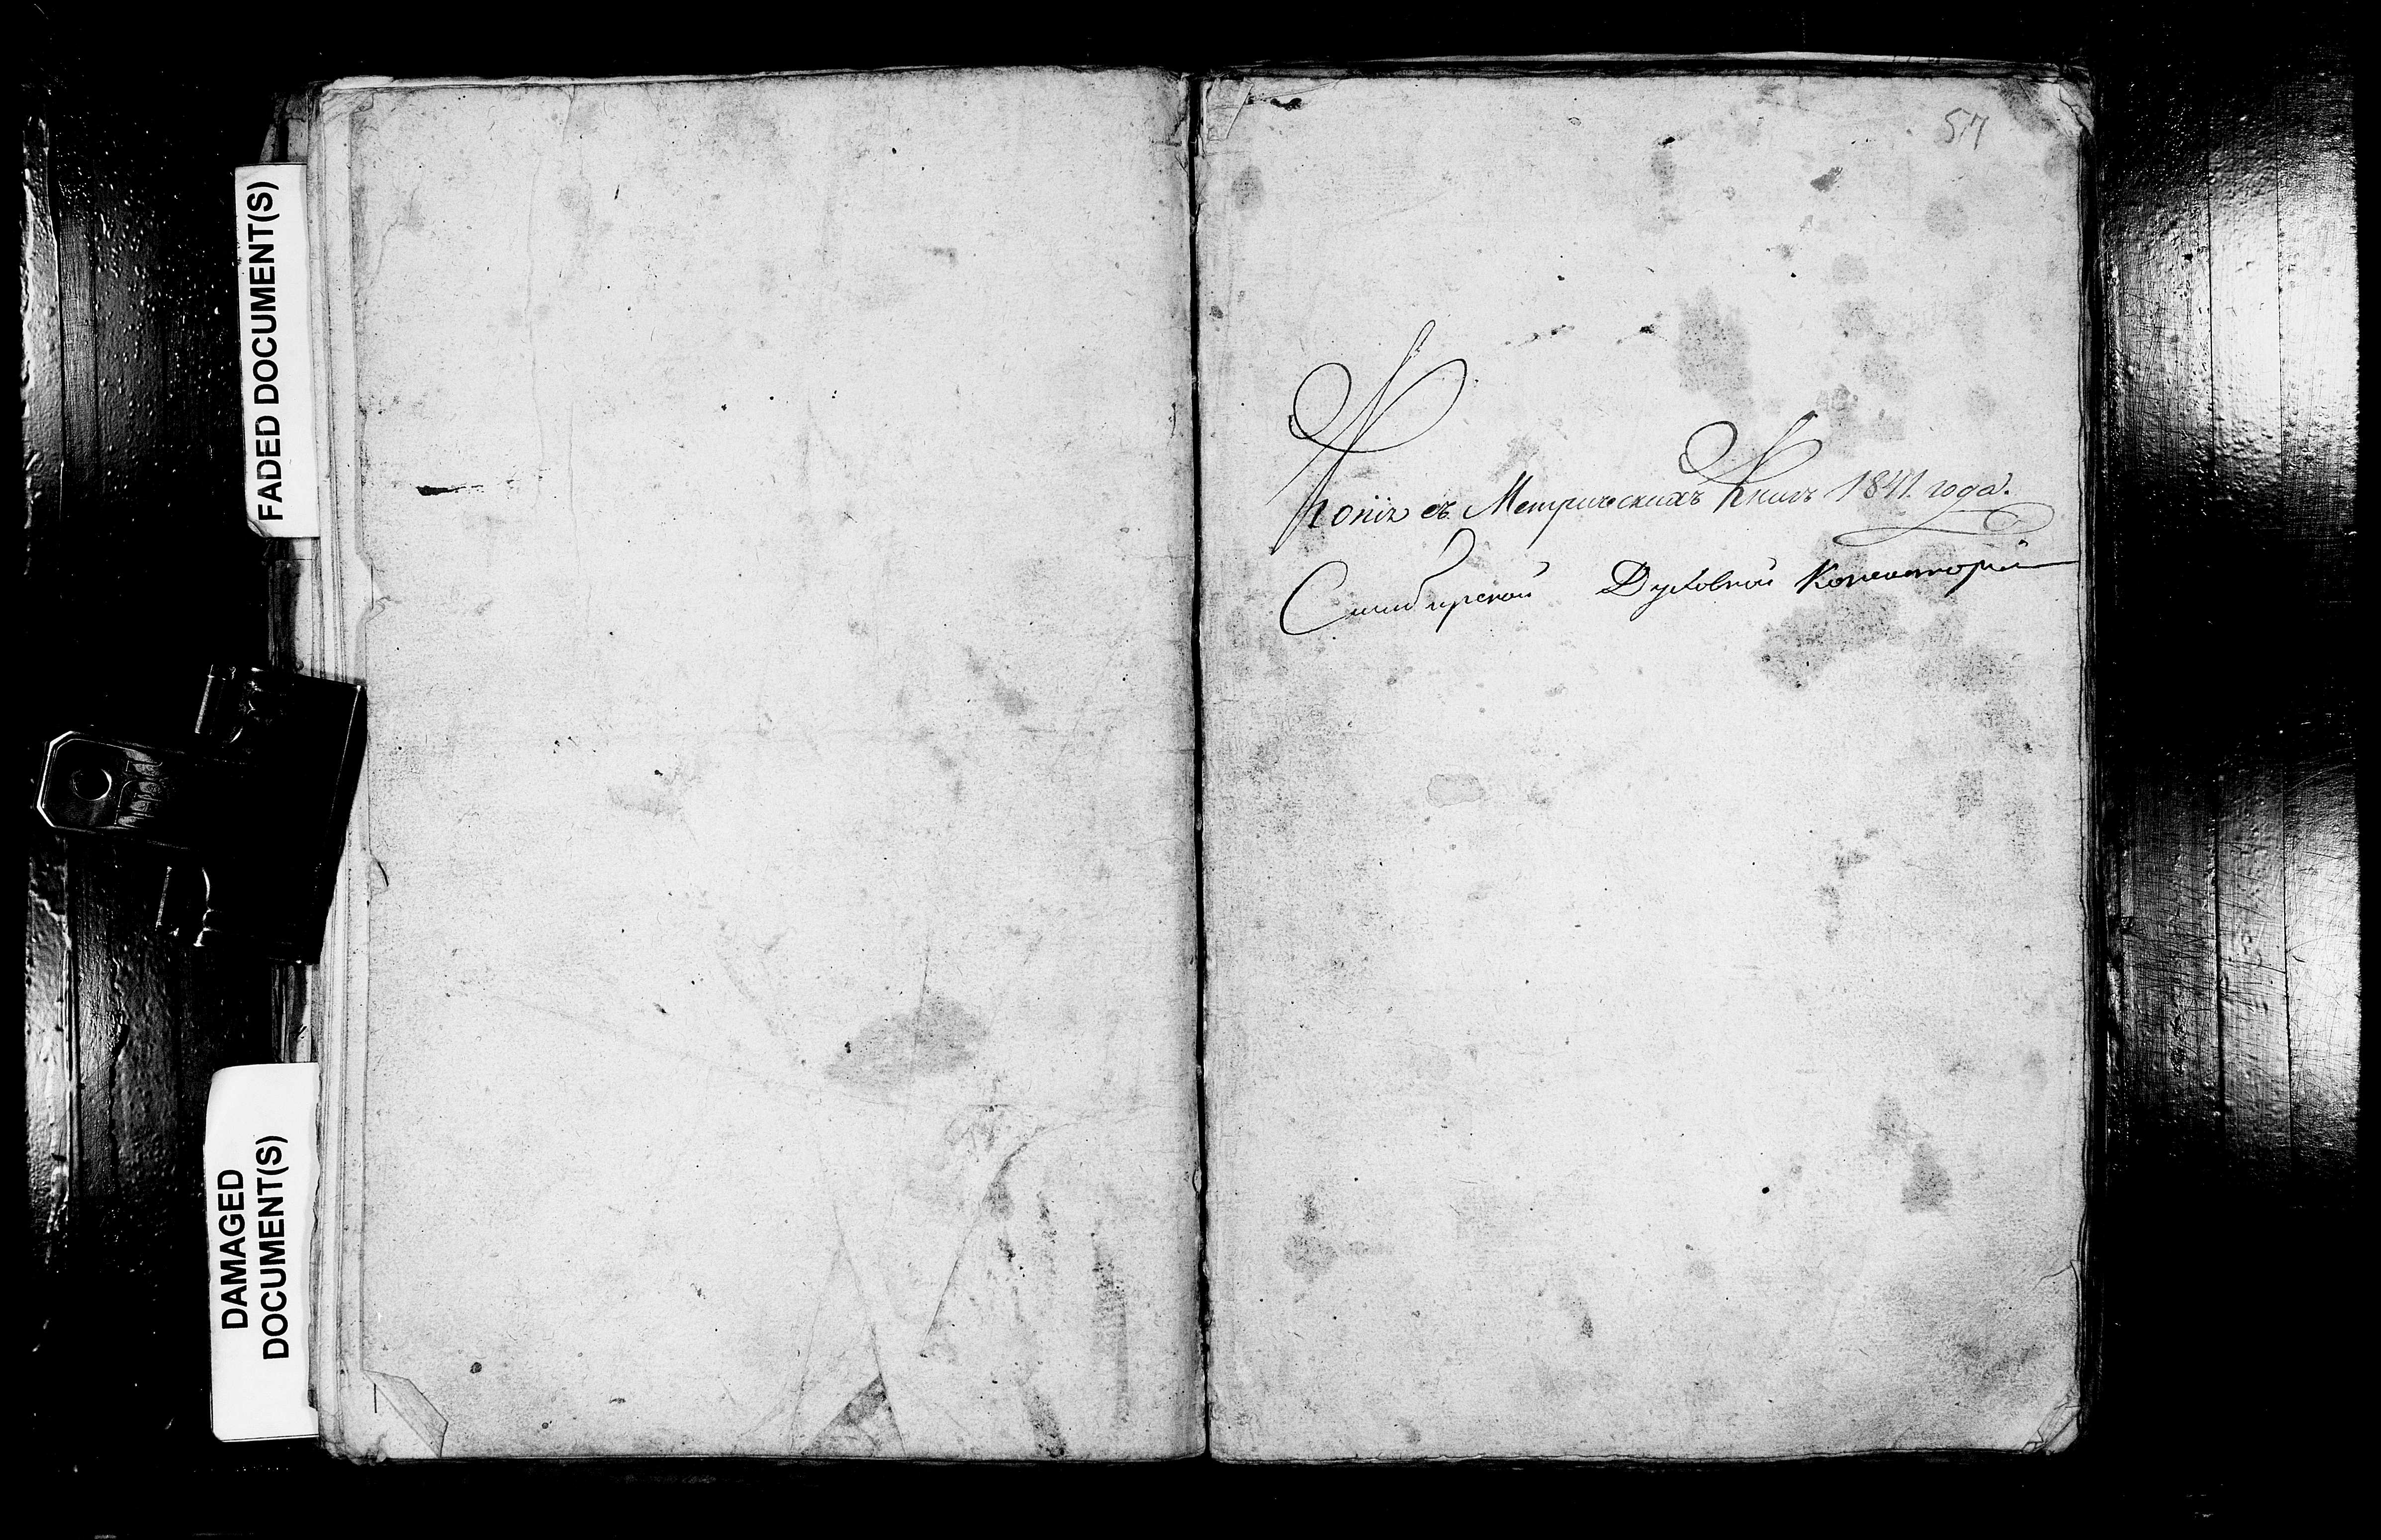 FADED DOCUMENT(S)
DAMAGED
DOCUMENT(S)
57
Копія съ Метрическихъ Книгъ 1841. года.
Симбирской Духовной Консисторіи